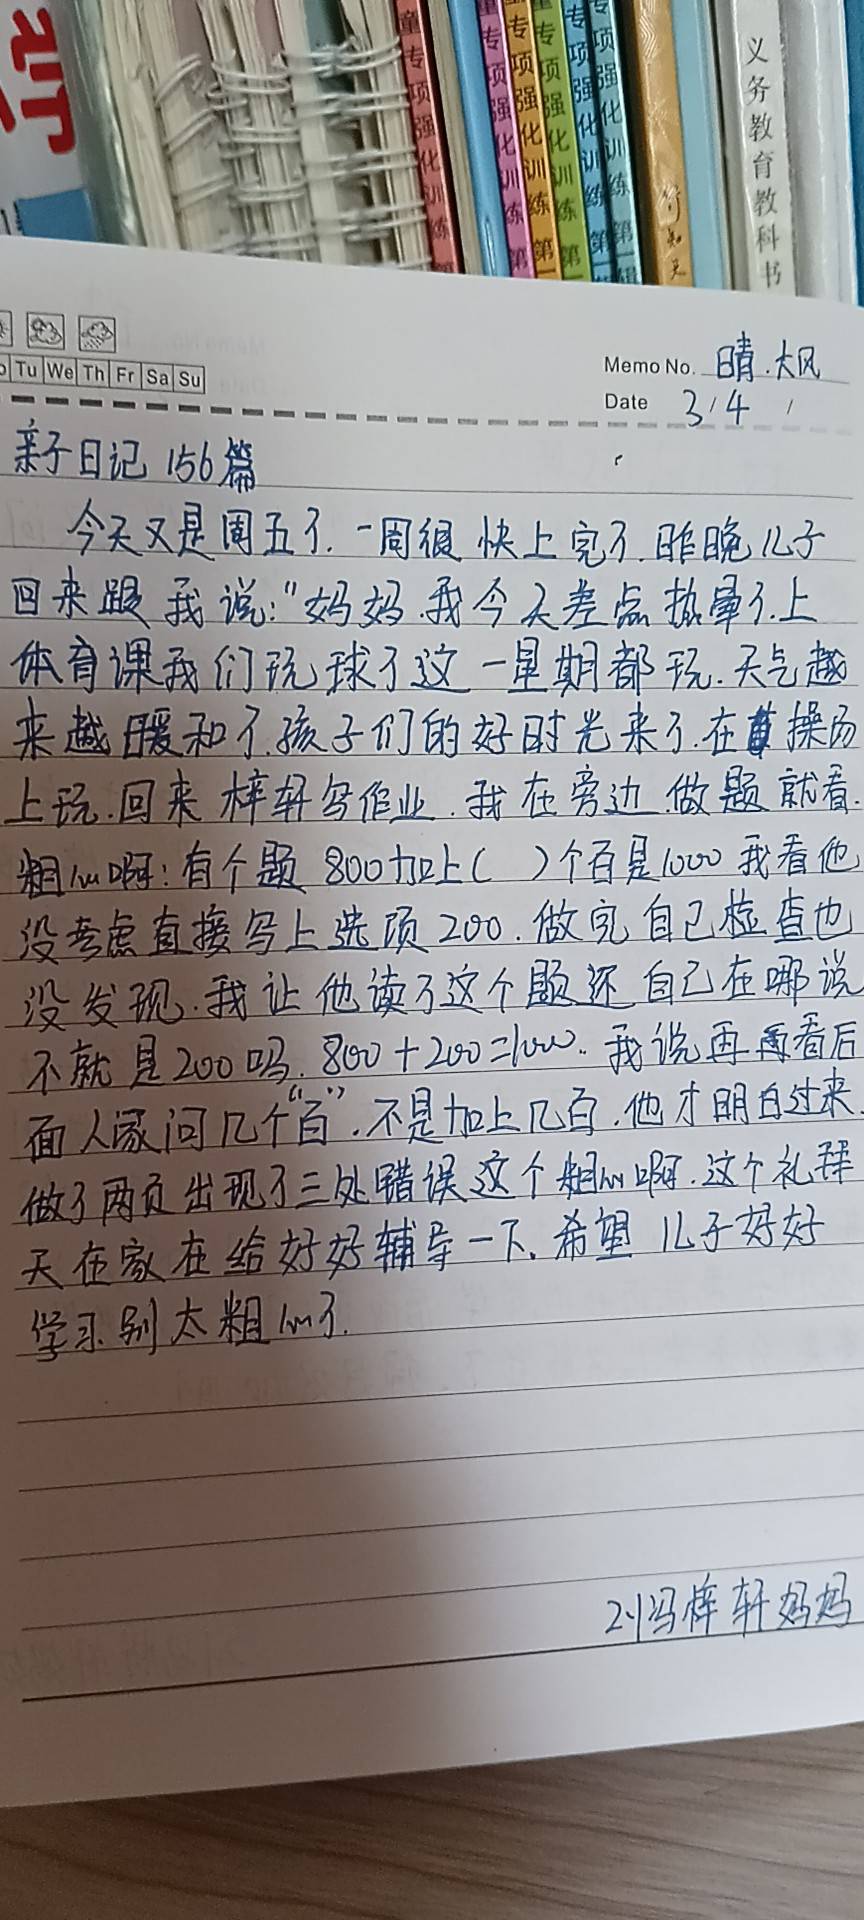 学
童专项强化训练
专项强化训练 第
专项强化训练 第
专项强化训练 第
专项强化训练 第
专项强化训练 第一辑
义务教育教科书
Tu We Th Fr Sa Su
Memo No. 晴.大风
Date 3/4 /
亲子日记 156篇
今天又是周五了.一周很快上完了.昨晚儿子
回来跟我说:"妈妈.我今天差点热晕了.上
体育课我们玩球了这一星期都玩.天气越
来越暖和了.孩子们的好时光来了.在操场
上玩.回来梓轩写作业.我在旁边.做题就看.
粗心啊:有个题 800加上( )个百是1000 我看他
没考虑直接写上选项200.做完自己检查也
没发现.我让他读了这个题还自己在哪说
不就是200吗.800+200=1000.我说再看后
面人家问几个"百".不是加上几百.他才明白过来.
做了两页出现了三处错误这个粗心啊.这个礼拜
天在家在给好好辅导一下.希望儿子好好
学习.别太粗心了.
刘冯梓轩妈妈